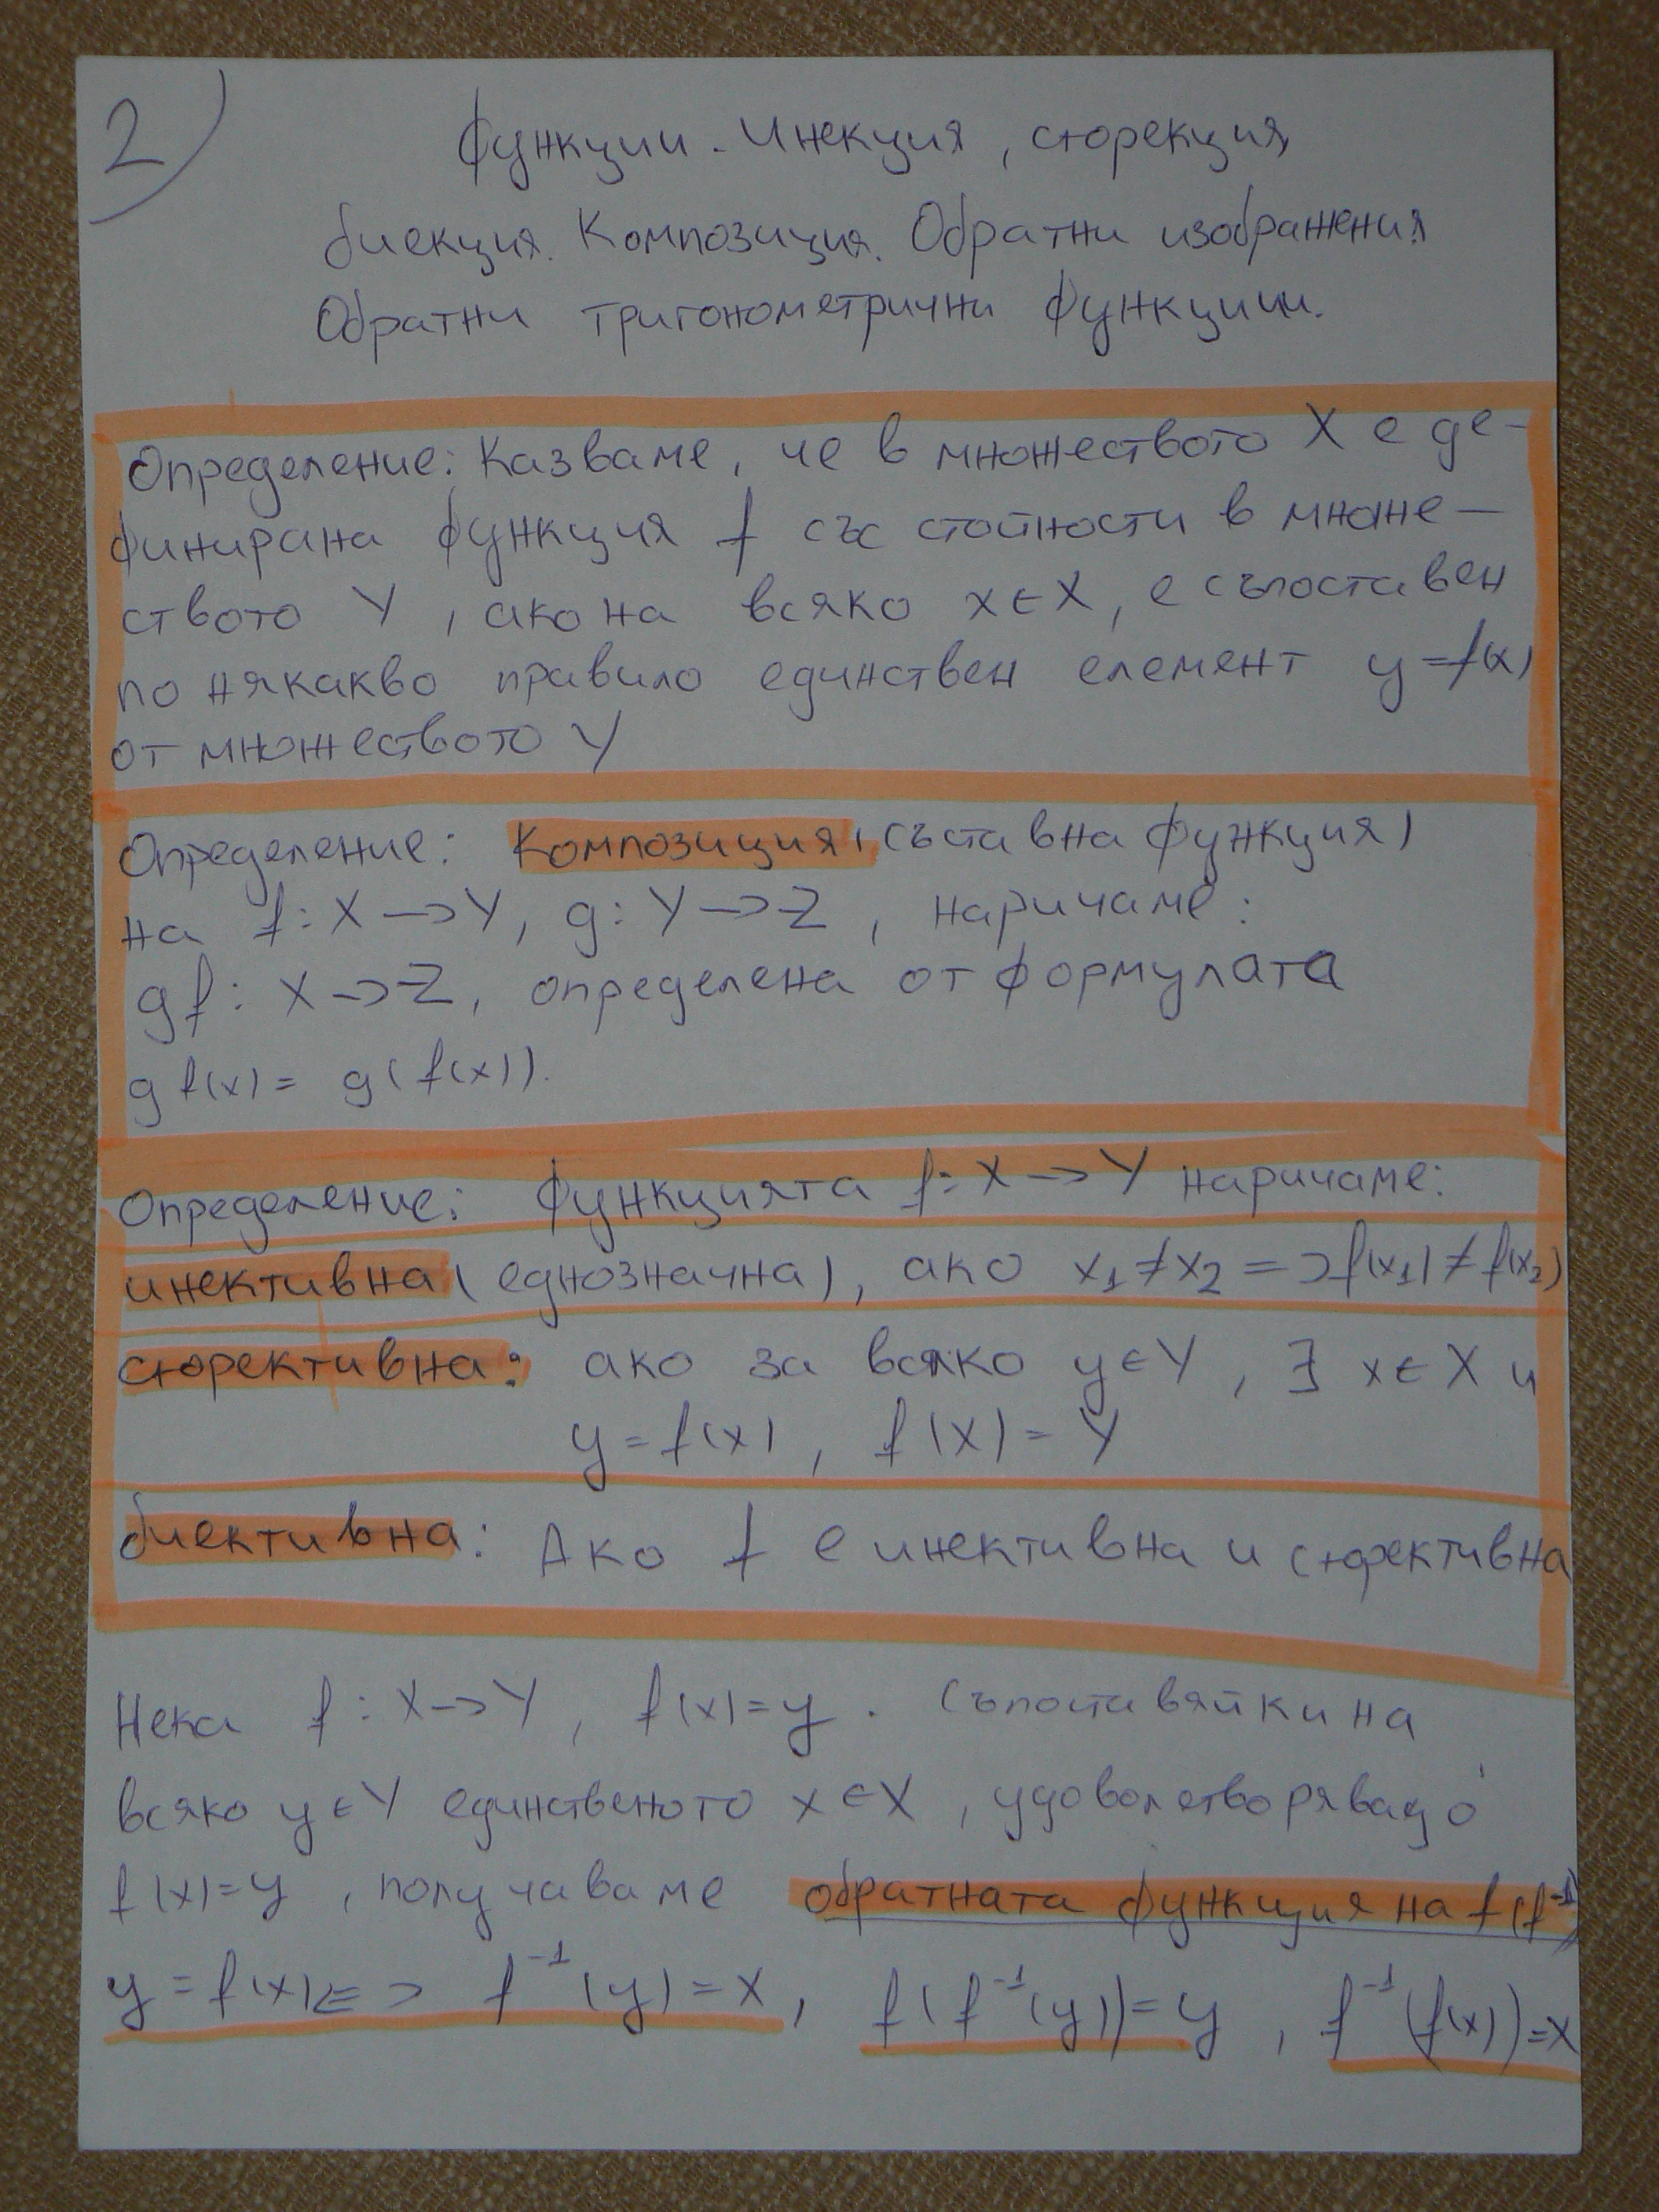 2)
Функции. Инекция, сюрекция,
биекция. Композиция. Обратни изображения.
Обратни тригонометрични функции.
Определение: Казваме, че в множеството X е де-
финирана функция f със стойности в множе-
ството Y, ако на всяко x∈X, е съпоставен
по някакво правило единствен елемент y=f(x)
от множеството Y
Определение: Композиция (съставна функция)
на f: X→Y, g: Y→Z, наричаме:
gf: X→Z, определена от формулата
gf(x)= g(f(x)).
Определение: Функцията f: X→Y наричаме:
инективна (еднозначна), ако x₁≠x₂ => f(x₁)≠f(x₂)
сюрективна: ако за всяко y∈Y, ∃ x∈X и
y=f(x), f(X)=Y
биективна: Ако f е инективна и сюрективна
Нека f: X→Y, f(x)=y. Съпоставяйки на
всяко y∈Y единственото x∈X, удоволетворяващо
f(x)=y, получаваме обратната функция на f(f⁻¹)
y=f(x)<=> f⁻¹(y)=x, f(f⁻¹(y))=y, f⁻¹(f(x))=x